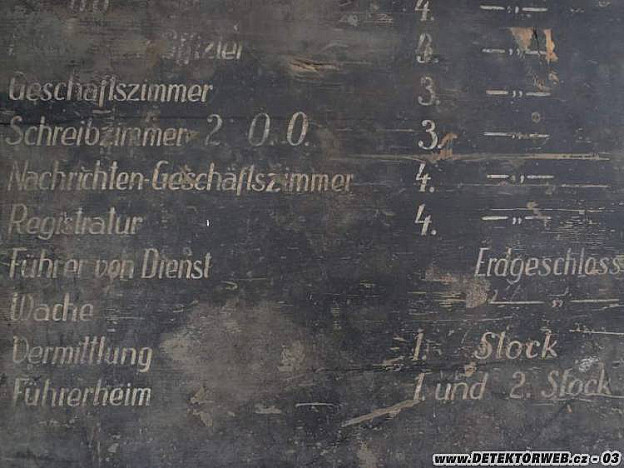 4. — „ —
3. — „ —
Geschäftszimmer 3. — „ —
Schreibzimmer 2 O.O. 3. — „ —
Nachrichten-Geschäftszimmer 4. — „ —
Registratur 4. — „ —
Führer von Dienst Erdgeschoss
Wache — „ —
Vermittlung 1. Stock
Führerheim 1. und 2. Stock
www.DETEKTORWEB.cz - 03